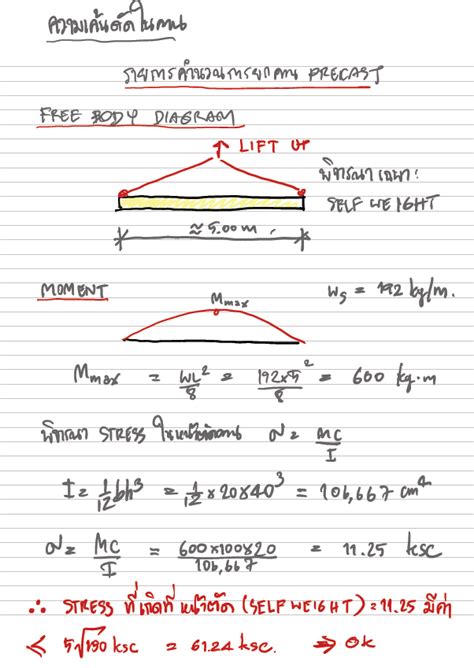 ความเค้นดัดในคาน
รายการคำนวณการยกคาน PRECAST
FREE BODY DIAGRAM
↑ LIFT UP
พิจารณาเฉพาะ:
SELF WEIGHT
≈ 5.00 m
MOMENT
Mmax
Ws = 192 kg/m.
Mmax = WL²/8 = 192×5²/8 = 600 kg·m
พิจารณา STRESS ในหน้าตัดคาน σ = MC/I
I = 1/12 bh³ = 1/12 × 20×40³ = 106,667 cm⁴
σ = MC/I = 600×100×20/106,667 = 11.25 ksc
∴ STRESS ที่เกิดที่หน้าตัด (SELF WEIGHT) = 11.25 มีค่า
< 5√150 ksc = 61.24 ksc. ⇒ OK